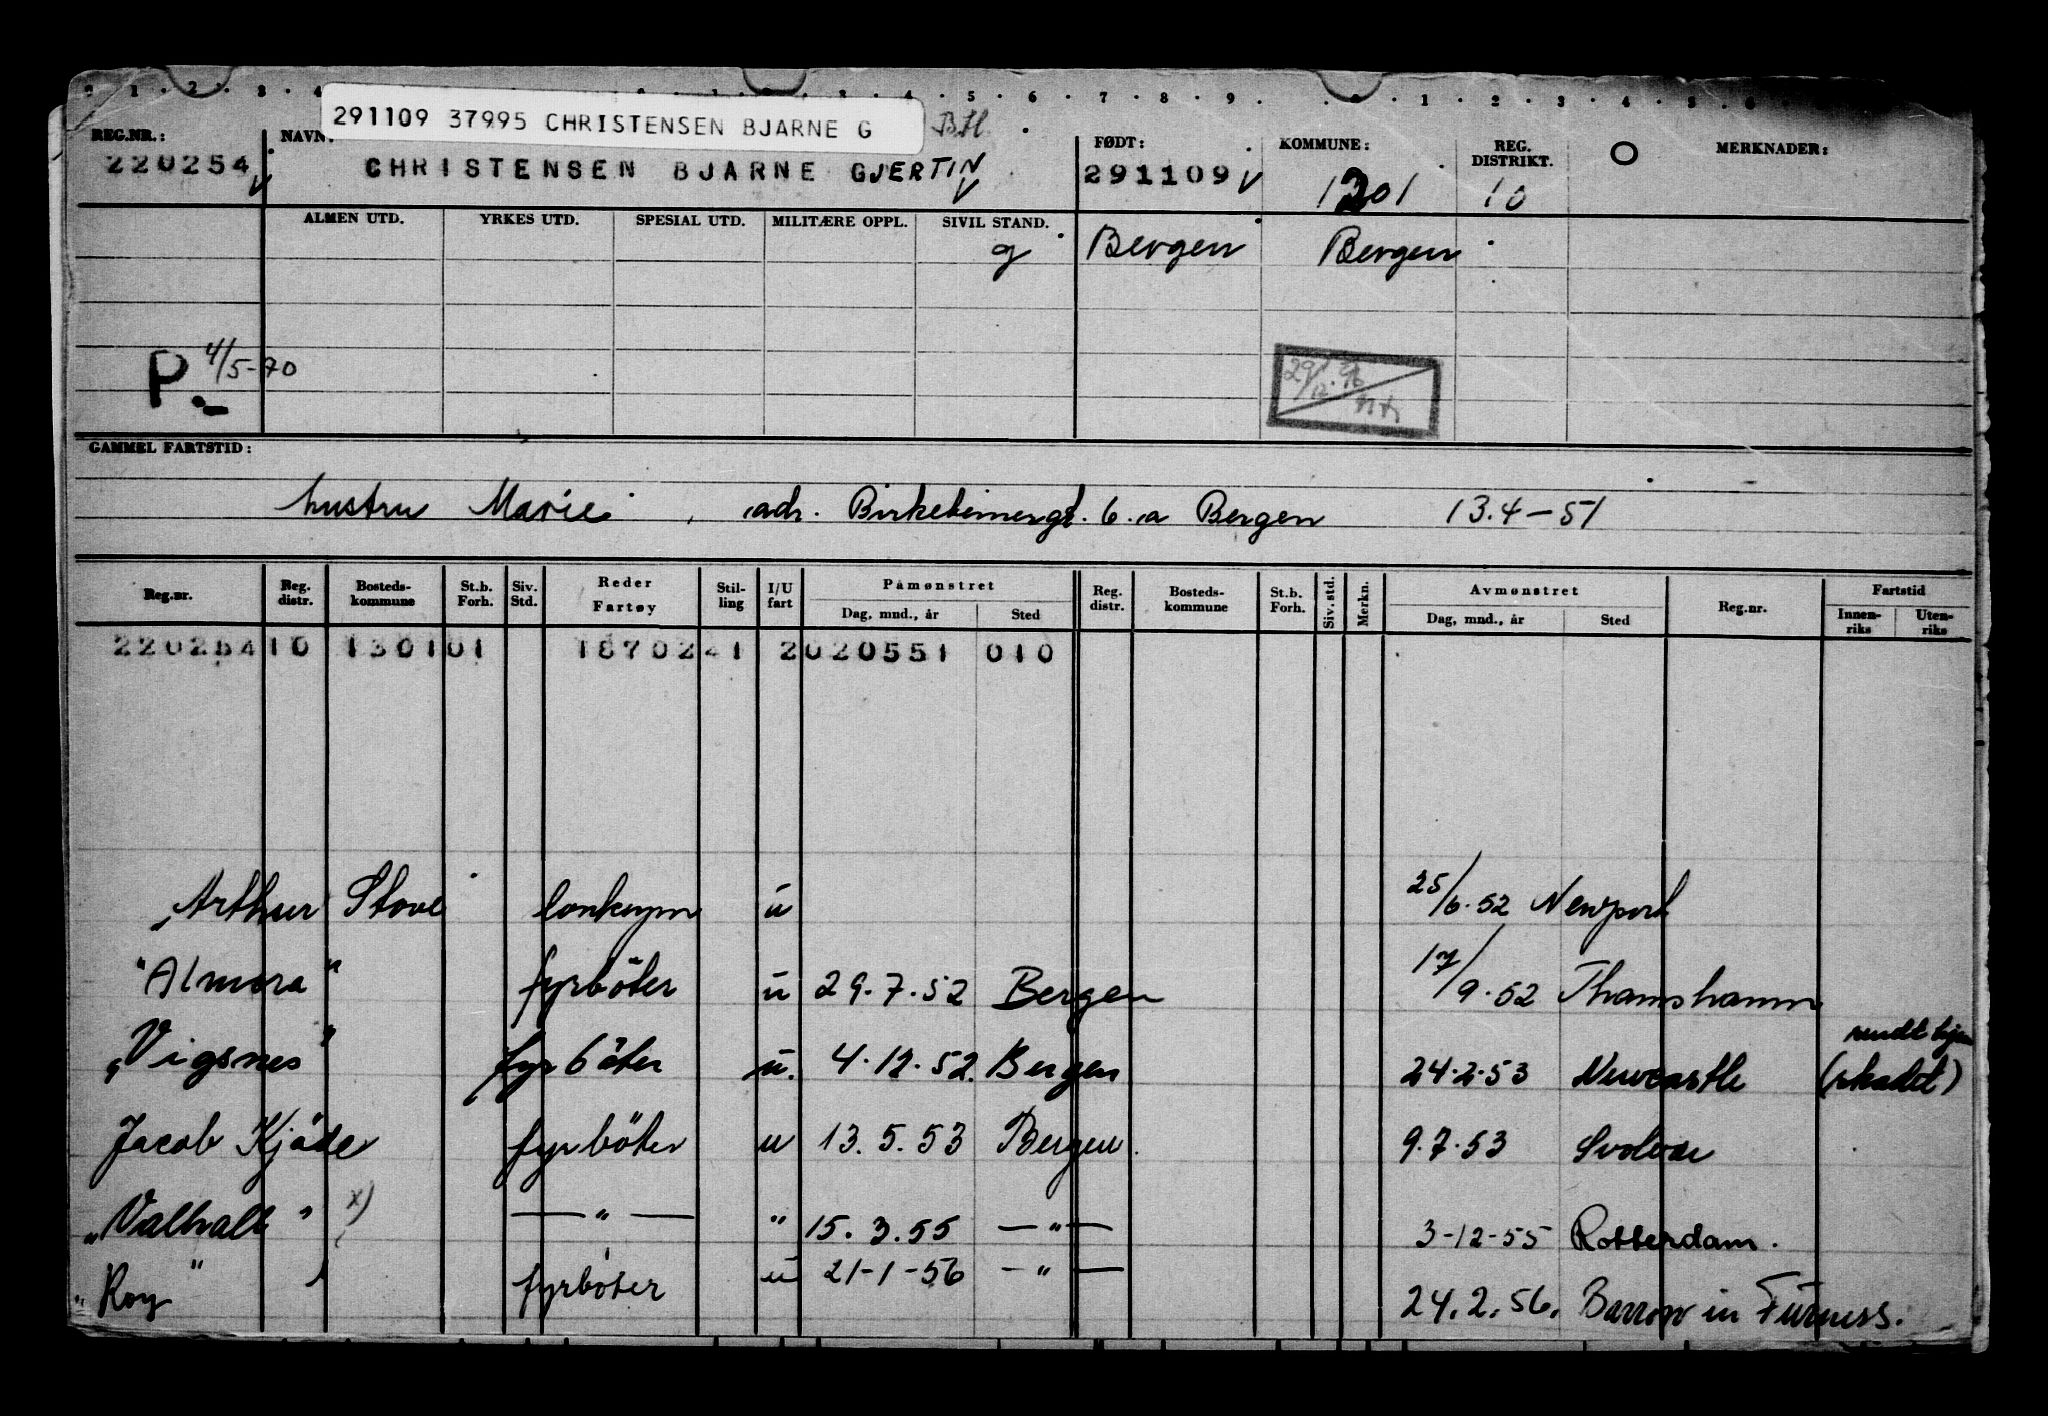 291109 37995 CHRISTENSEN BJARNE G
REG.NR.: NAVN: FØDT: KOMMUNE: REG. DISTRIKT. MERKNADER:
220254 CHRISTENSEN BJARNE GJERTIN 291109 1301 10
ALMEN UTD. YRKES UTD. SPESIAL UTD. MILITÆRE OPPL. SIVIL STAND.
g Bergen Bergen
P. 4/5-70
GAMMEL FARTSTID:
hustru Marie, adr. Birkebeinergt. 6.a Bergen 13.4-51
Reg.nr. Reg. distr. Bosteds-kommune St.b. Forh. Siv. Std. Reder Fartøy Stil-ling I/U fart Påmønstret Dag, mnd., år Sted Reg. distr. Bosteds-kommune St.b. Forh. Siv. std. Merkn. Avmønstret Dag, mnd., år Sted Reg.nr. Fartstid Innen-riks Uten-riks
220254 10 1301 01 1870241 2 020551 010
Arthur Stove u 25/6.52 Newport
"Almora" fyrböter u 29.7.52 Bergen 17/9.52 Thamshamn
sendt hjem
"Vigsnes" fyrböter u. 4.12.52. Bergen 24.2.53 Newcastle (skadet)
Jacob Kjöde fyrböter u 13.5.53 Bergen. 9.7.53 Svolvær
"Valhall" x) —"— " 15.3.55 —"— 3-12-55 Rotterdam.
"Roy" fyrböter u 21-1-56 —"— 24.2.56. Barrow in Furness.